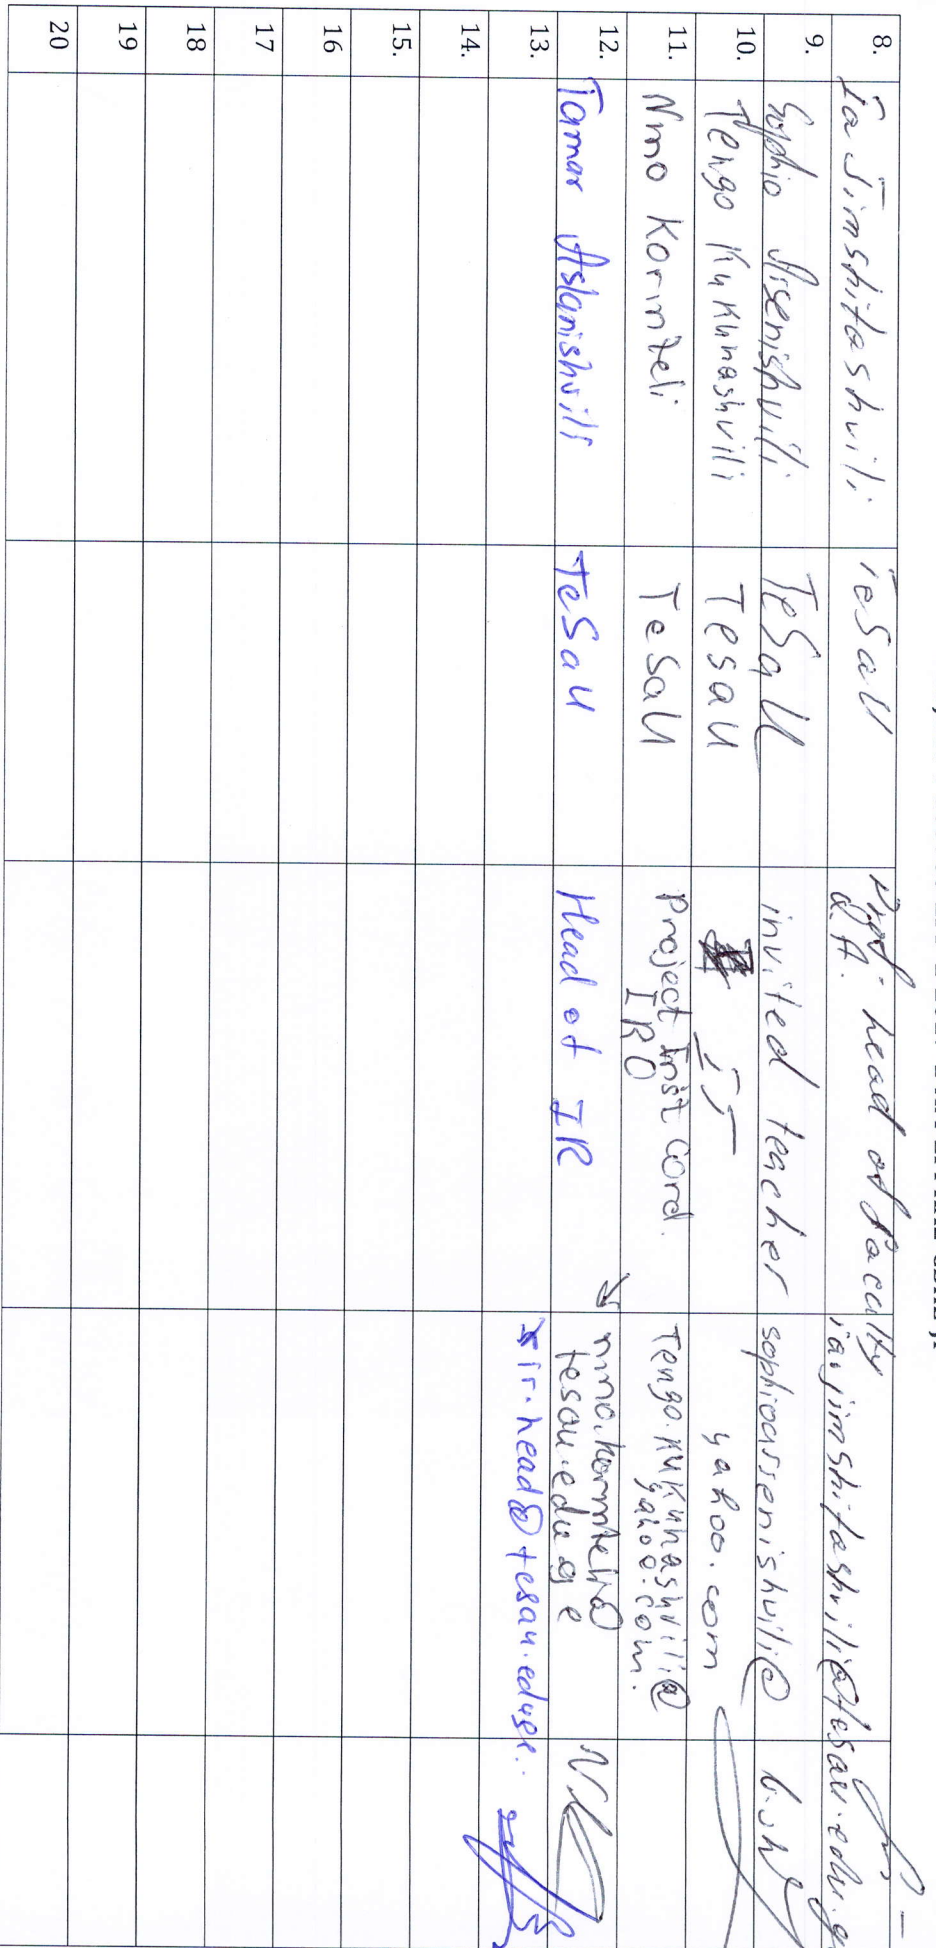 8. Ia Jimshitashvili TeSaU Prof. head of faculty
Q.A. iajimshitashvili@tesau.edu.g
9. Sophio Arsenishvili TeSaU invited teacher sophioarsenishvili@
yahoo.com
10. Tengo Kukunashvili TesaU IT Tengo.kukunashvili@
yahoo.com.
11. Nino Kornteli TeSaU Project Inst Cord.
IRO nino.kornteli@
tesau.edu.ge
12. Tamar Aslanishvili TeSaU Head of IR ir.head@tesau.edu.ge
13.
14.
15.
16
17
18
19
20